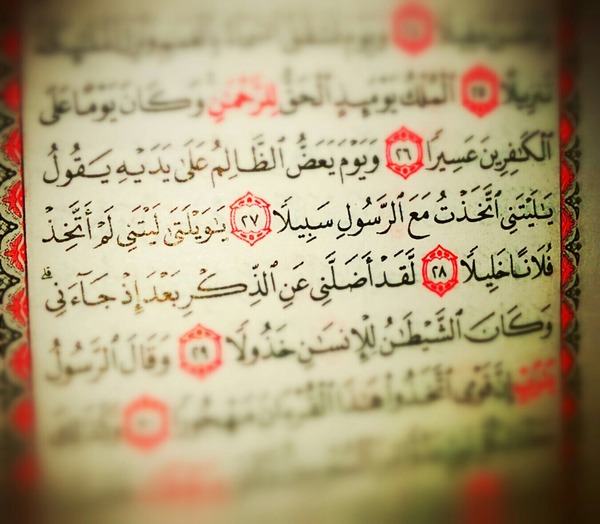 تنزيلا ٢٥ الملك يومئذ الحق للرحمن وكان يوما على
الكٰفرين عسيرا ٢٦ ويوم يعض الظالم على يديه يقول
يٰليتني اتخذت مع الرسول سبيلا ٢٧ يٰويلتى ليتني لم أتخذ
فلانا خليلا ٢٨ لقد أضلني عن الذكر بعد إذ جاءني
وكان الشيطٰن للإنسٰن خذولا ٢٩ وقال الرسول
يٰرب إن قومي اتخذوا هٰذا القرءان مهجورا ٣٠ وكذلك